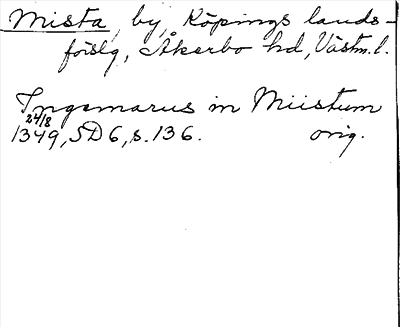 Mista, by, Köpings lands-
förslg, Åkerbo hd, Västm.l.
Ingemarus in Miistum
24/8
1349, SD 6, s. 136. orig.